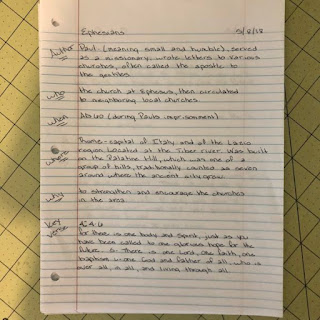 Ephesians 5/8/18
Author Paul (meaning small and humble), served
as a missionary. wrote letters to various
churches, often called the apostle to
the gentiles
who the church at Ephesus, then circulated
to neighboring local churches.
when AD 60 (during Pauls imprisonment)
where Rome - capital of Italy and of the Lazio
region located at the Tiber river. Was built
on the Palatine Hill, which was one of a
group of hills, traditionally counted as seven
around where the ancient city grew
why to strengthen and encourage the churches
in the area
Key verse 4:4-6
for there is one body and spirit, just as you
have been called to one glorious hope for the
future. 5- There is one Lord, one faith, one
baptism 6- one God and father of all, who is
over all, in all, and living through all.